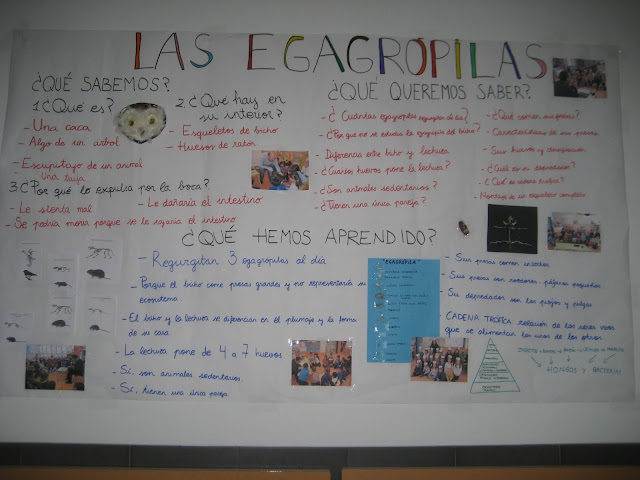 LAS EGAGRÓPILAS
¿QUÉ SABEMOS?
1 ¿Qué es?
- Una caca
- Algo de un árbol
- Escupitajo de un animal
Una
2 ¿Qué hay en
su interior?
- Esqueletos de bicho
- Huesos de ratón
3 ¿Por qué lo expulsa por la boca?
- Le sienta mal
- Lo dañaría el intestino
- Se podría morir porque se le rajaría el intestino
¿QUÉ QUEREMOS SABER?
- ¿Cuántas egagrópilas al día?
- ¿Por qué no se estudia la egagrópila del búho?
- Diferencia entre búho y lechuza
- ¿Cuántos huevos pone la lechuza?
- ¿Son animales sedentarios?
- ¿Tienen una única pareja?
- ¿Qué comen sus presas?
- Características de sus presas
- Sus huesos y
- ¿Cuál es su depredador?
- ¿Qué es cadena trófica?
- Montaje de un esqueleto completo
¿QUÉ HEMOS APRENDIDO?
- Regurgitan 3 egagrópilas al día
- Porque el búho come presas grandes y no representaría su
ecosistema.
- El búho y la lechuza se diferencian en el plumaje y la forma
de su cara
- La lechuza pone de 4 a 7 huevos.
- Sí, son animales sedentarios.
- Sí, tienen una única pareja
"EGAGRÓPILA"
- Sus presas comen insectos
- Sus presas son roedores, pájaros pequeños
- Su depredador son los piojos y pulgas
- CADENA TRÓFICA: relación de los seres vivos
que se alimentan los unos de los otros.
HONGOS Y BACTERIAS